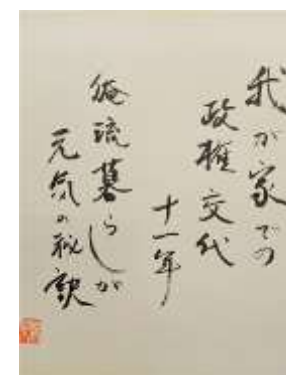 我が家での
政権交代
十一年
俺流暮らしが
元気の秘訣